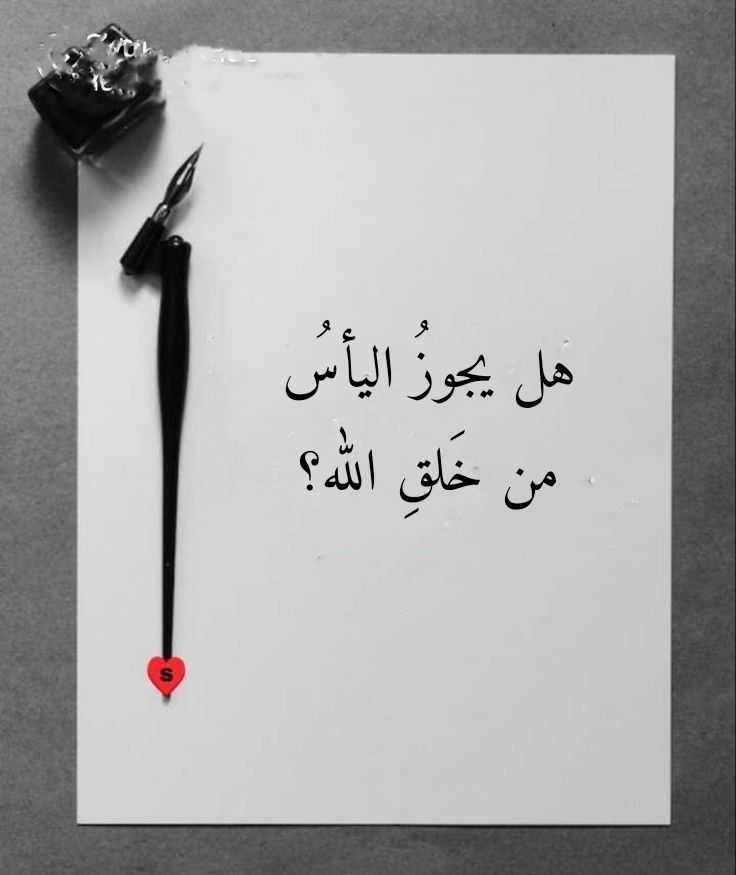 هل يجوزُ اليأسُ
من خَلقِ الله؟
S